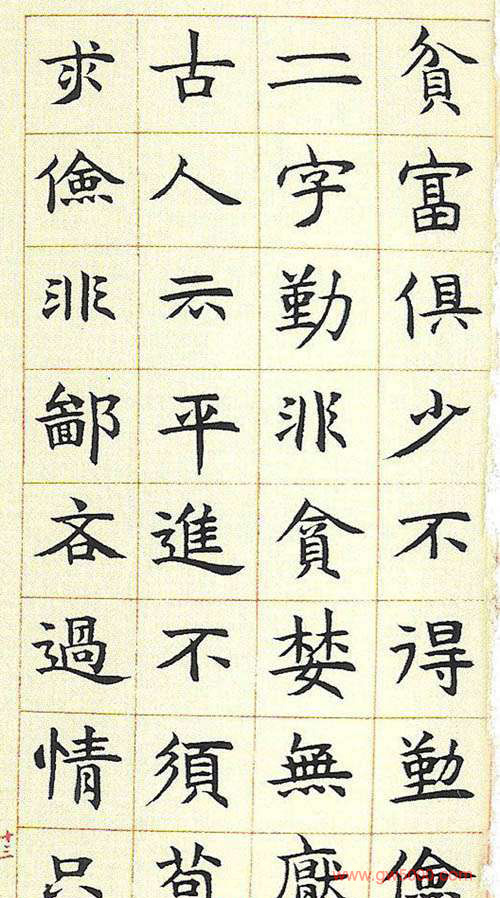 貧富俱少不得勤儉
二字勤非貪婪無厭
古人云平進不須苟
求儉非鄙吝過情只
十三